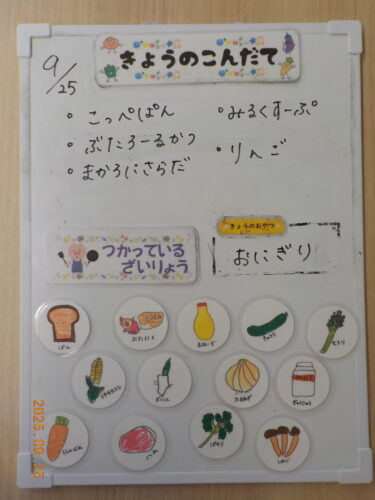 きょうのこんだて
9/25
・こっぺぱん
・ぶたろーるかつ
・まかろにさらだ
・みるくすーぷ
・りんご
きょうのおやつ
おにぎり
つかっている
ざいりょう
ぱん
ぶたにく
まよねーず
きゅうり
せろり
トウモロコシ
だいこん
たまねぎ
ぎゅうにゅう
にんじん
ハム
ぱせり
しめじ
2025.09.25